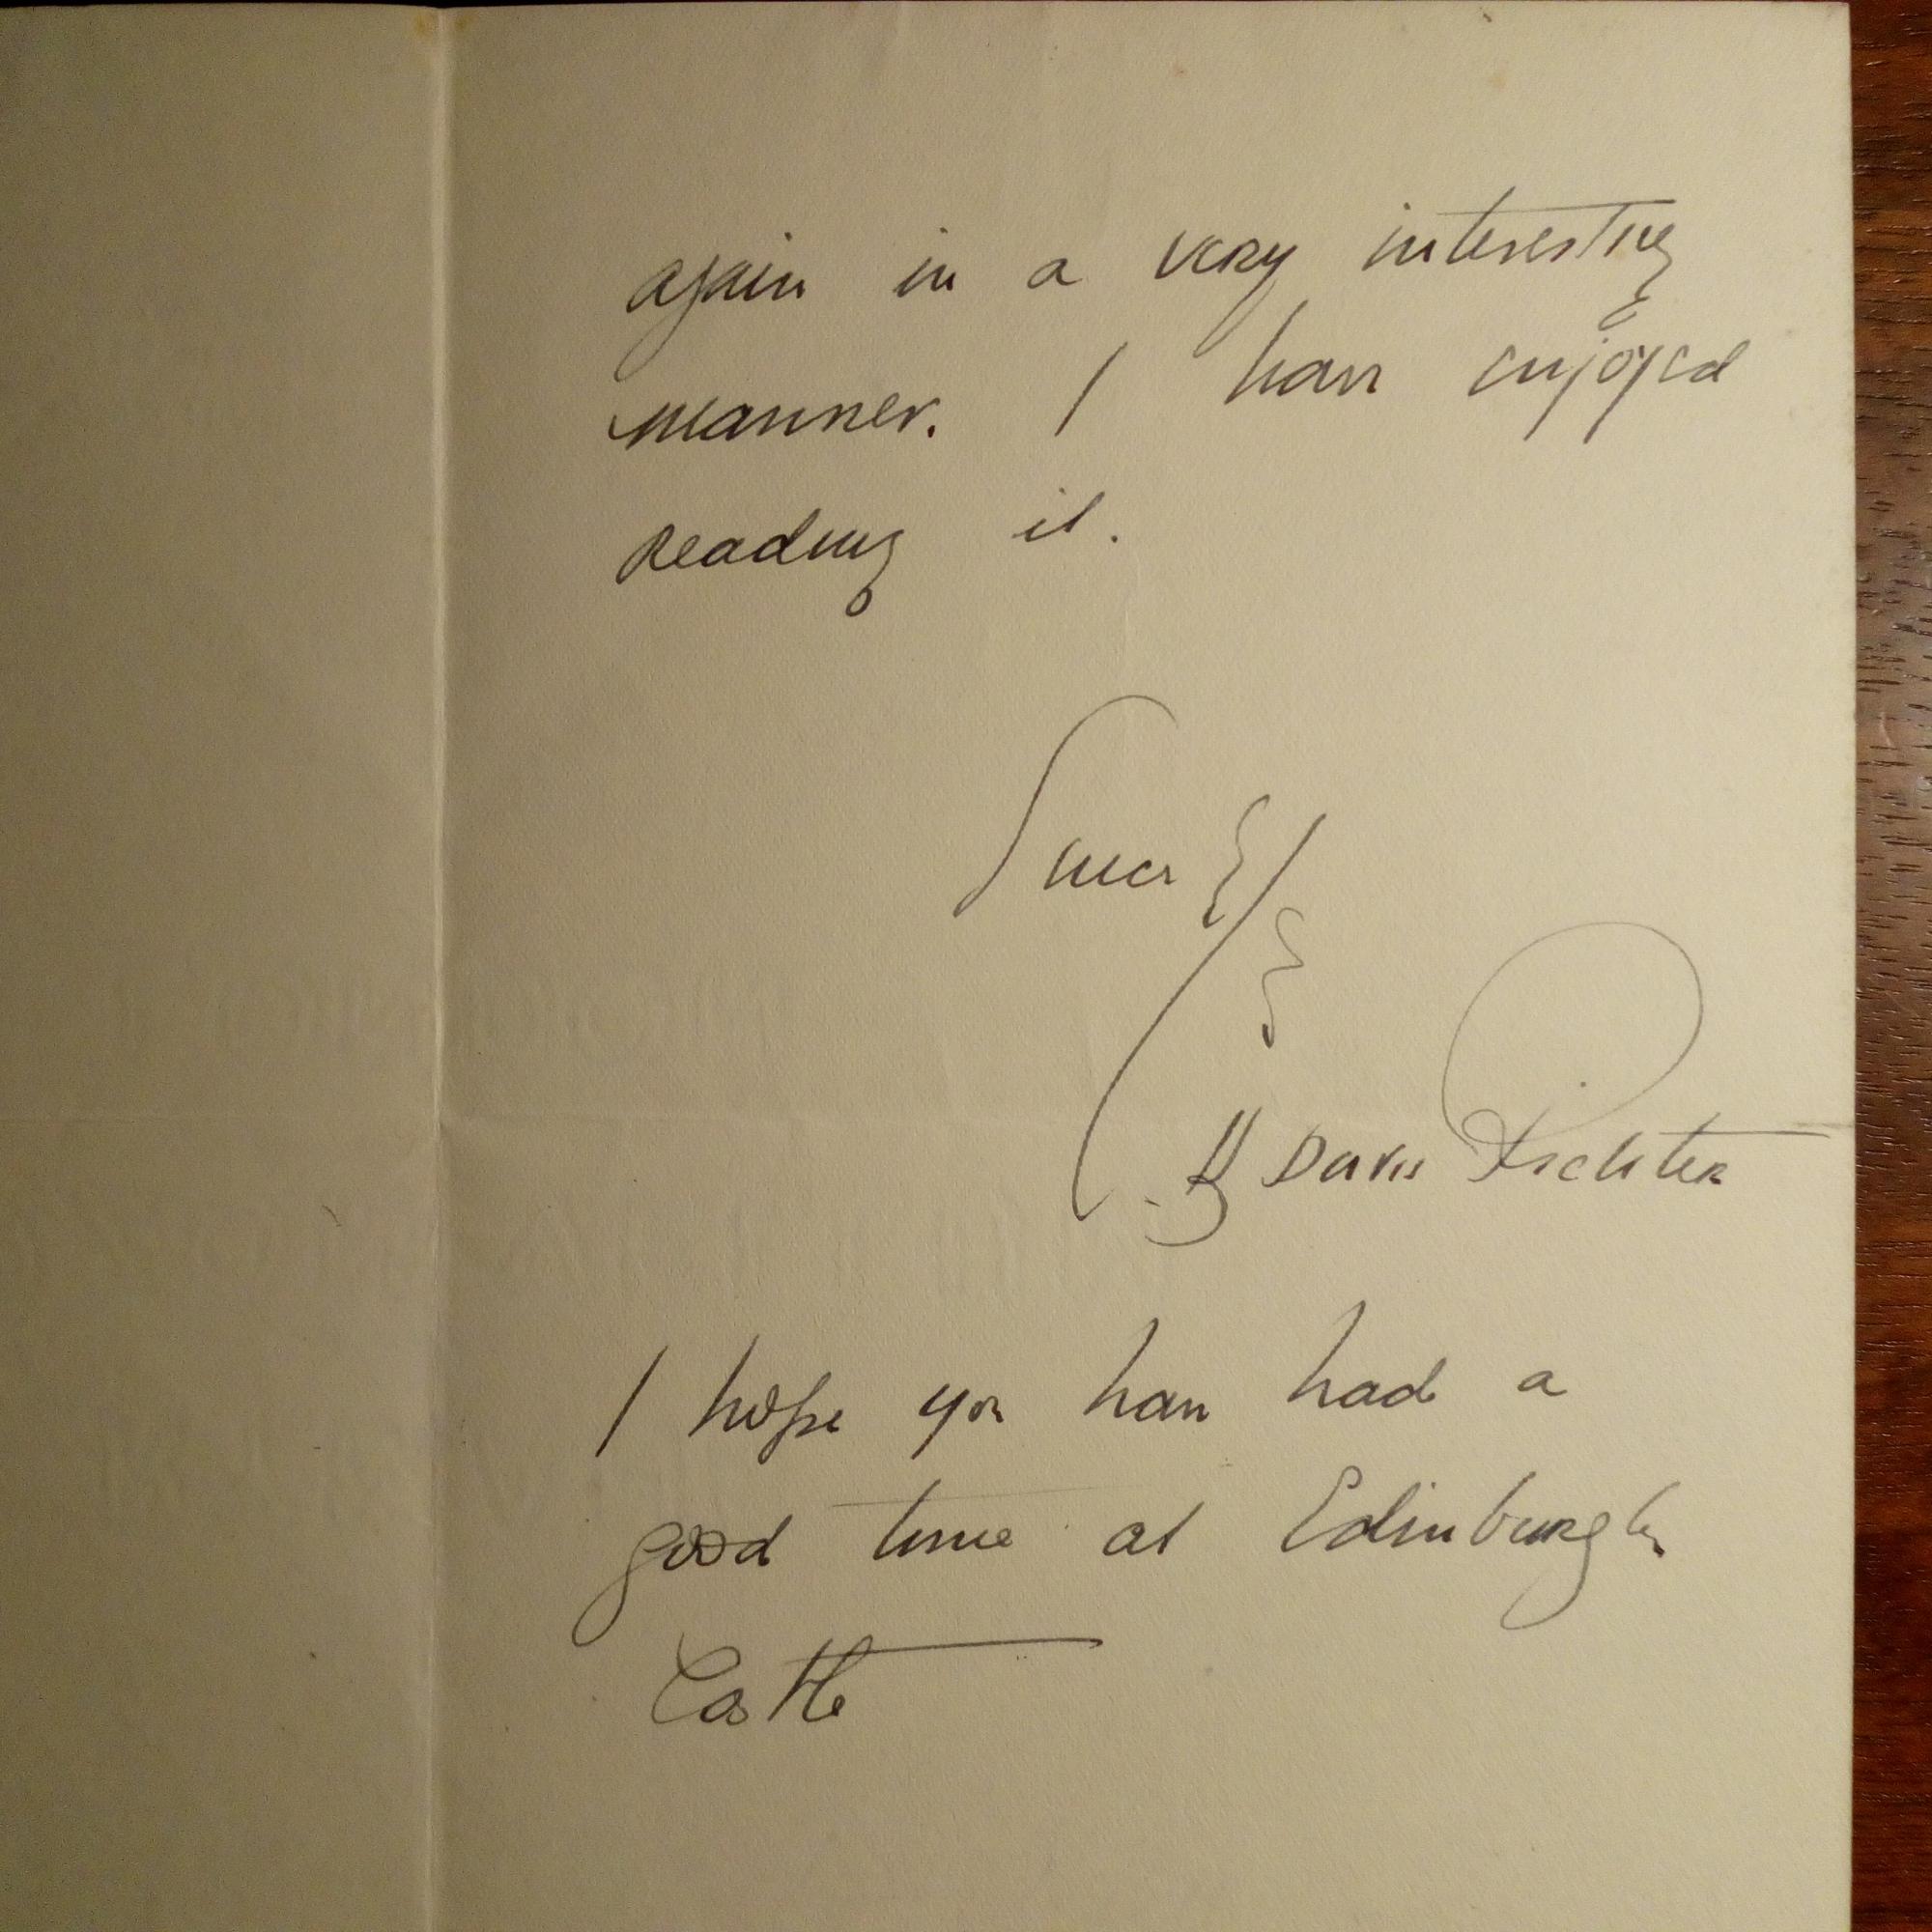 again in a very interesting
manner. I have enjoyed
reading it.
Sincerely
H Davis Richter
I hope you have had a
good time at Edinburgh
Castle